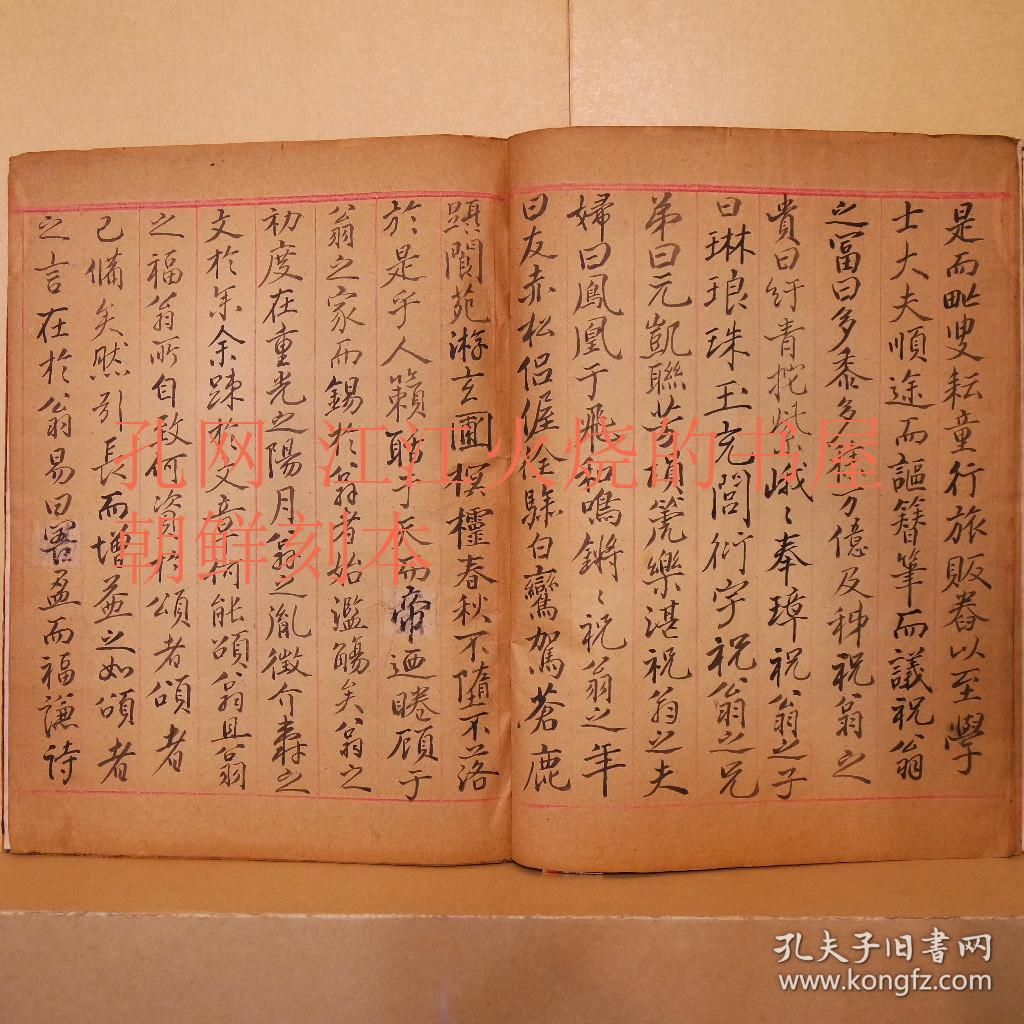 是而毗叟耘童行旅販舂以至學
士大夫順途而謳簪筆而議祝翁
之富曰多黍多稌万億及秭祝翁之
貴曰紆青拕紫峨〻奉璋祝翁之子
曰琳琅珠玉充閭衍宇祝翁之兄
弟曰元凱聯芳塤箎樂湛祝翁之夫
婦曰鳳凰于飛和鳴鏘〻祝翁之年
曰友赤松侶偓佺驂白鸞駕蒼鹿
躋閬苑游玄圃椇櫺春秋不隳不落
於是乎人籟聆于辰而帝迺睠顾于
翁之家而錫於翁者始濫觴矣翁之
初度在重光之陽月翁之胤徵介壽之
文於余余踈於文章何能頌翁且翁
之福翁所自致何資於頌者頌者
已備矣然引長而增益之如頌者
之言在於翁易曰害盈而福謙詩
孔网 江江火烧的书屋
朝鲜刻本
孔夫子旧书网
www.kongfz.com